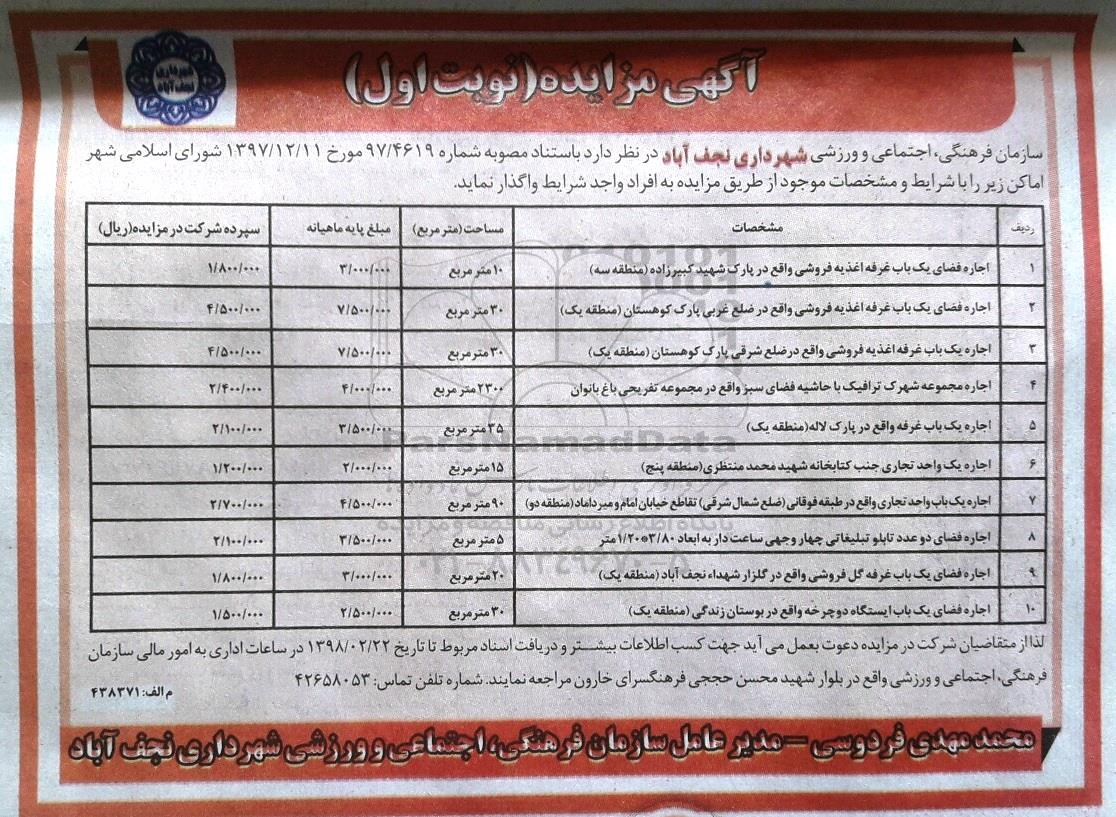 شهرداری
نجف آباد
آگهی مزایده(نوبت اول)
سازمان فرهنگی، اجتماعی و ورزشی شهرداری نجف آباد در نظر دارد باستناد مصوبه شماره ۹۷/۴۶۱۹ مورخ ۱۳۹۷/۱۲/۱۱ شورای اسلامی شهر
اماکن زیر را با شرایط و مشخصات موجود از طریق مزایده به افراد واجد شرایط واگذار نماید.
ردیف مشخصات مساحت (متر مربع) مبلغ پایه ماهیانه سپرده شرکت در مزایده(ریال)
۱ اجاره فضای یک باب غرفه اغذیه فروشی واقع در پارک شهید کبیرزاده (منطقه سه) ۱۰ متر مربع ۳/۰۰۰/۰۰۰ ۱/۸۰۰/۰۰۰
۲ اجاره فضای یک باب غرفه اغذیه فروشی واقع در ضلع غربی پارک کوهستان (منطقه یک) ۳۰ متر مربع ۷/۵۰۰/۰۰۰ ۴/۵۰۰/۰۰۰
۳ اجاره یک باب غرفه اغذیه فروشی واقع در ضلع شرقی پارک کوهستان (منطقه یک) ۳۰ متر مربع ۷/۵۰۰/۰۰۰ ۴/۵۰۰/۰۰۰
۴ اجاره مجموعه شهرک ترافیک با حاشیه فضای سبز واقع در مجموعه تفریحی باغ بانوان ۲۳۰۰ متر مربع ۴/۰۰۰/۰۰۰ ۲/۴۰۰/۰۰۰
۵ اجاره یک باب غرفه واقع در پارک لاله (منطقه یک) ۳۵ متر مربع ۳/۵۰۰/۰۰۰ ۲/۱۰۰/۰۰۰
۶ اجاره یک واحد تجاری جنب کتابخانه شهید محمد منتظری (منطقه پنج) ۱۵ متر مربع ۲/۰۰۰/۰۰۰ ۱/۲۰۰/۰۰۰
۷ اجاره یک باب واحد تجاری واقع در طبقه فوقانی (ضلع شمال شرقی) تقاطع خیابان امام و میرداماد (منطقه دو) ۹۰ متر مربع ۴/۵۰۰/۰۰۰ ۲/۷۰۰/۰۰۰
۸ اجاره فضای دو عدد تابلو تبلیغاتی چهار وجهی ساعت دار به ابعاد ۳/۸۰*۱/۲۰ متر ۵ متر مربع ۳/۵۰۰/۰۰۰ ۲/۱۰۰/۰۰۰
۹ اجاره فضای یک باب غرفه گل فروشی واقع در گلزار شهداء نجف آباد (منطقه یک) ۲۰ متر مربع ۳/۰۰۰/۰۰۰ ۱/۸۰۰/۰۰۰
۱۰ اجاره فضای یک باب ایستگاه دوچرخه واقع در بوستان زندگی (منطقه یک) ۳۰ متر مربع ۲/۵۰۰/۰۰۰ ۱/۵۰۰/۰۰۰
ParsNamadData
پایگاه اطلاع رسانی مناقصه و مزایده
۰۲۱-۸۸۳۴۹۶۷۰-۵
لذا از متقاضیان شرکت در مزایده دعوت بعمل می آید جهت کسب اطلاعات بیشتر و دریافت اسناد مربوط تا تاریخ ۱۳۹۸/۰۲/۲۲ در ساعات اداری به امور مالی سازمان
فرهنگی، اجتماعی و ورزشی واقع در بلوار شهید محسن حججی فرهنگسرای خارون مراجعه نمایند. شماره تلفن تماس: ۴۲۶۵۸۰۵۳
م الف: ۴۳۸۳۷۱
محمد مهدی فردوسی - مدیر عامل سازمان فرهنگی، اجتماعی و ورزشی شهرداری نجف آباد